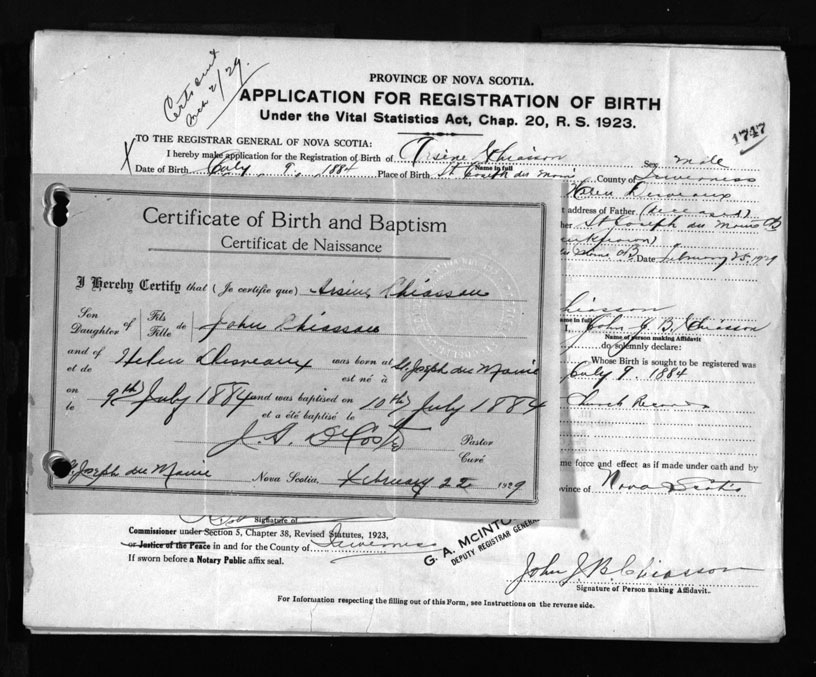 Cert sent
Mch 2/29.
PROVINCE OF NOVA SCOTIA.
APPLICATION FOR REGISTRATION OF BIRTH
Under the Vital Statistics Act, Chap. 20, R. S. 1923.
1747
TO THE REGISTRAR GENERAL OF NOVA SCOTIA:
X I hereby make application for the Registration of Birth of Arsene Chiasson Sex male
Name in full
Date of Birth July 9, 1884 Place of Birth St Joseph du Moine County of Inverness
Helen Desveaux
t address of Father (deceased)
her St Joseph du Moine CB
(unknown)
Date February 25, 1929
Certificate of Birth and Baptism
Certificat de Naissance
I Hereby Certify that (Je certifie que) Arsene Chiasson
Son Daughter of Fils Fille de John Chiasson
and of et de Helen Desveaux was born at St Joseph du Moine
est né à
on le 9th July 1884 and was baptised on 10th July 1884
et a été baptisé le
Pastor
Curé
St. Joseph du Moine Nova Scotia, February 22 1929
hiasson
me in full
I, John J. B. Chiasson
Name of person making Affidavit
do solemnly declare:
Whose Birth is sought to be registered was
July 9, 1884
Church Records
me force and effect as if made under oath and by
ovince of Nova Scotia
Signature of
Commissioner under Section 5, Chapter 38, Revised Statutes, 1923,
or Justice of the Peace in and for the County of Inverness
If sworn before a Notary Public affix seal.
G. A. McINTO
DEPUTY REGISTRAR GENERA
John J. B. Chiasson
Signature of Person making Affidavit.
For Information respecting the filling out of this Form, see Instructions on the reverse side.